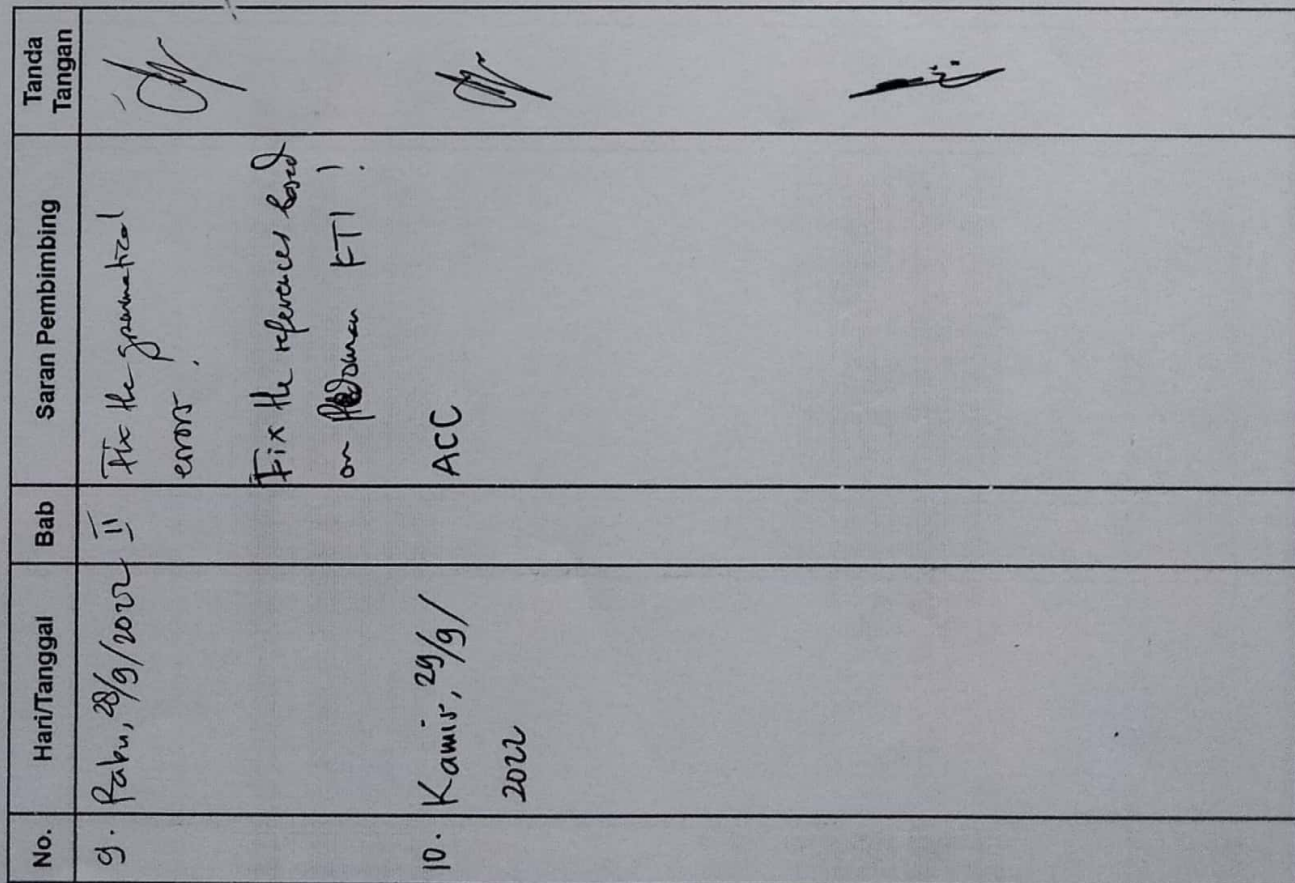 No. Hari/Tanggal Bab Saran Pembimbing Tanda Tangan
9. Rabu, 28/9/2022 II Fix the grammatical
errors.
Fix the references based
on Pedoman FTI!
10. Kamis, 29/9/ ACC
2022